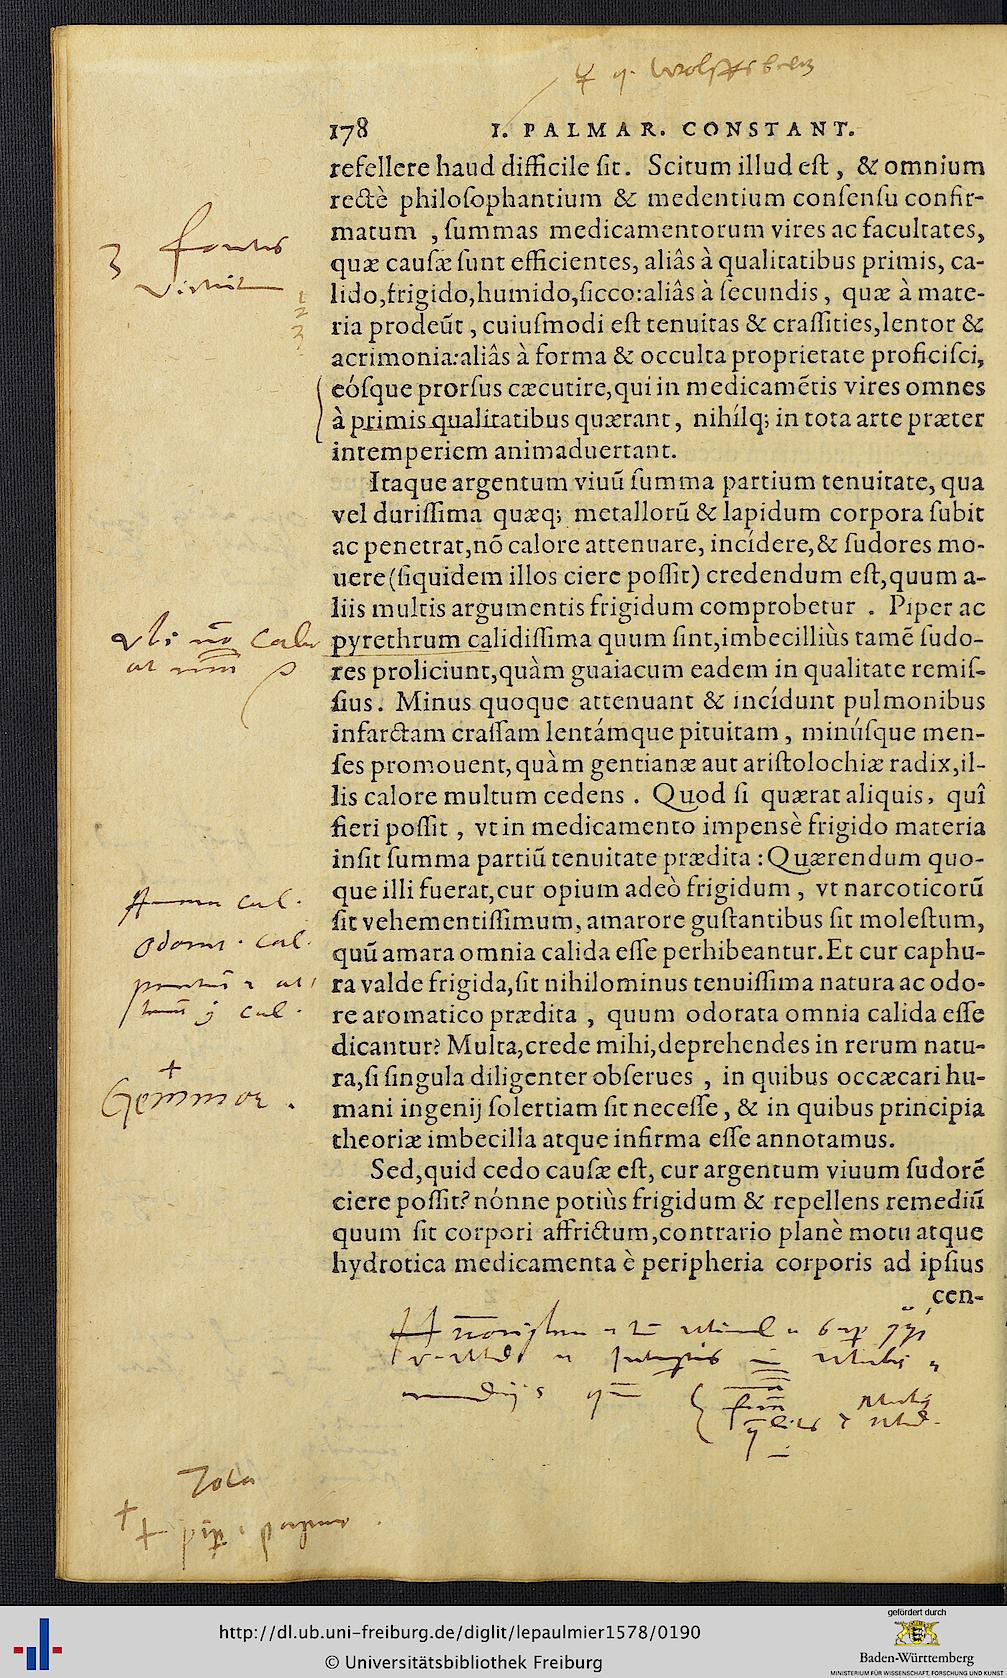 Wolffs
178 I. PALMAR. CONSTANT.
refellere haud difficile ſit. Scitum illud eſt, & omnium
rectè philoſophantium & medentium conſenſu confir-
matum, ſummas medicamentorum vires ac facultates,
quæ cauſæ ſunt efficientes, aliâs à qualitatibus primis, ca-
lido, frigido, humido, ſicco: aliâs à ſecundis, quæ à mate-
ria prodeūt, cuiuſmodi eſt tenuitas & craſſities, lentor &
acrimonia: aliâs à forma & occulta proprietate proficiſci,
eóſque prorſus cæcutire, qui in medicamētis vires omnes
à primis qualitatibus quærant, nihílq; in tota arte præter
intemperiem animaduertant.
Itaque argentum viuū ſumma partium tenuitate, qua
vel duriſſima quæq; metallorū & lapidum corpora ſubit
ac penetrat, nō calore attenuare, incídere, & ſudores mo-
uere (ſiquidem illos ciere poſſit) credendum eſt, quum a-
liis multis argumentis frigidum comprobetur. Piper ac
pyrethrum calidiſſima quum ſint, imbecilliùs tamē ſudo-
res proliciunt, quàm guaiacum eadem in qualitate remiſ-
ſius. Minus quoque attenuant & incídunt pulmonibus
infarctam craſſam lentámque pituitam, minúſque men-
ſes promouent, quàm gentianæ aut ariſtolochiæ radix, il-
lis calore multum cedens. Quod ſi quærat aliquis, quî
fieri poſſit, vt in medicamento impensè frigido materia
inſit ſumma partiū tenuitate prædita: Quærendum quo-
que illi fuerat, cur opium adeò frigidum, vt narcoticorū
ſit vehementiſſimum, amarore guſtantibus ſit moleſtum,
quū amara omnia calida eſſe perhibeantur. Et cur caphu-
ra valde frigida, ſit nihilominus tenuiſſima natura ac odo-
re aromatico prædita, quum odorata omnia calida eſſe
dicantur? Multa, crede mihi, deprehendes in rerum natu-
ra, ſi ſingula diligenter obſerues, in quibus occæcari hu-
mani ingenij ſolertiam ſit neceſſe, & in quibus principia
theoriæ imbecilla atque infirma eſſe annotamus.
Sed, quid cedo cauſæ eſt, cur argentum viuum ſudorē
ciere poſſit? nónne potiùs frigidum & repellens remediū
quum ſit corpori affrictum, contrario planè motu atque
hydrotica medicamenta è peripheria corporis ad ipſius
cen-
3 fontes
1
2
3
cal.
cal.
cal.
http://dl.ub.uni-freiburg.de/diglit/lepaulmier1578/0190
© Universitätsbibliothek Freiburg
gefördert durch
Baden-Württemberg
MINISTERIUM FÜR WISSENSCHAFT, FORSCHUNG UND KUNST